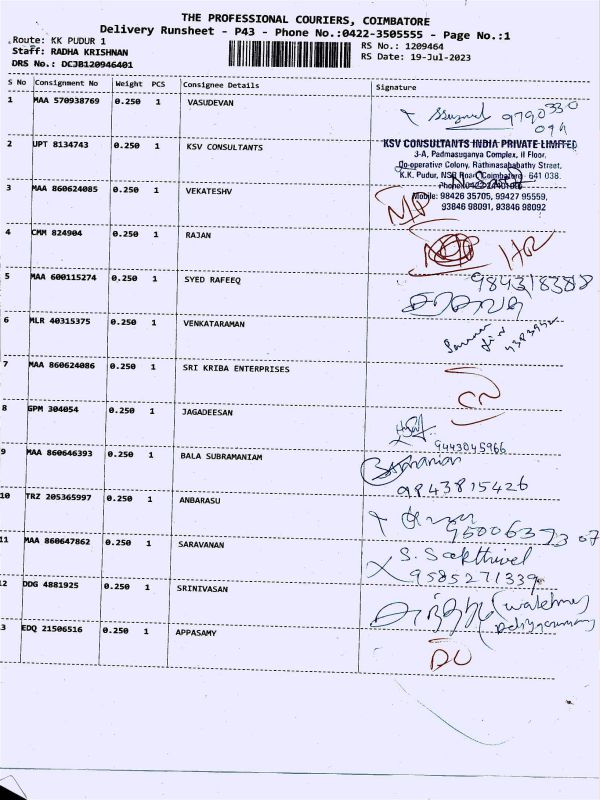 THE PROFESSIONAL COURIERS, COIMBATORE
Delivery Runsheet - P43 - Phone No.:0422-3505555 - Page No.:1
Route: KK PUDUR 1
RS No.: 1209464
Staff: RADHA KRISHNAN
RS Date: 19-Jul-2023
DRS No.: DCJB120946401
S No Consignment No Weight PCS Consignee Details Signature
1 MAA 570938769 0.250 1 VASUDEVAN
9790330
2 UPT 8134743 0.250 1 KSV CONSULTANTS
KSV CONSULTANTS INDIA PRIVATE LIMITED
3-A, Padmasuganya Complex, II Floor,
Co-operative Colony, Rathinasabapathy Street,
K.K. Pudur, NSR Road, Coimbatore - 641 038.
Mobile: 98426 35705, 99427 95559,
93846 98091, 93846 98092
3 MAA 860624085 0.250 1 VEKATESHV
4 CMM 824904 0.250 1 RAJAN
5 MAA 600115274 0.250 1 SYED RAFEEQ
6 MLR 40315375 0.250 1 VENKATARAMAN
7 MAA 860624086 0.250 1 SRI KRIBA ENTERPRISES
8 GPM 304054 0.250 1 JAGADEESAN
9443045966
9 MAA 860646393 0.250 1 BALA SUBRAMANIAM
9843815426
10 TRZ 205365997 0.250 1 ANBARASU
11 MAA 860647862 0.250 1 SARAVANAN
S. Sakthivel
9585271339
12 DDG 4881925 0.250 1 SRINIVASAN
3 EDQ 21506516 0.250 1 APPASAMY